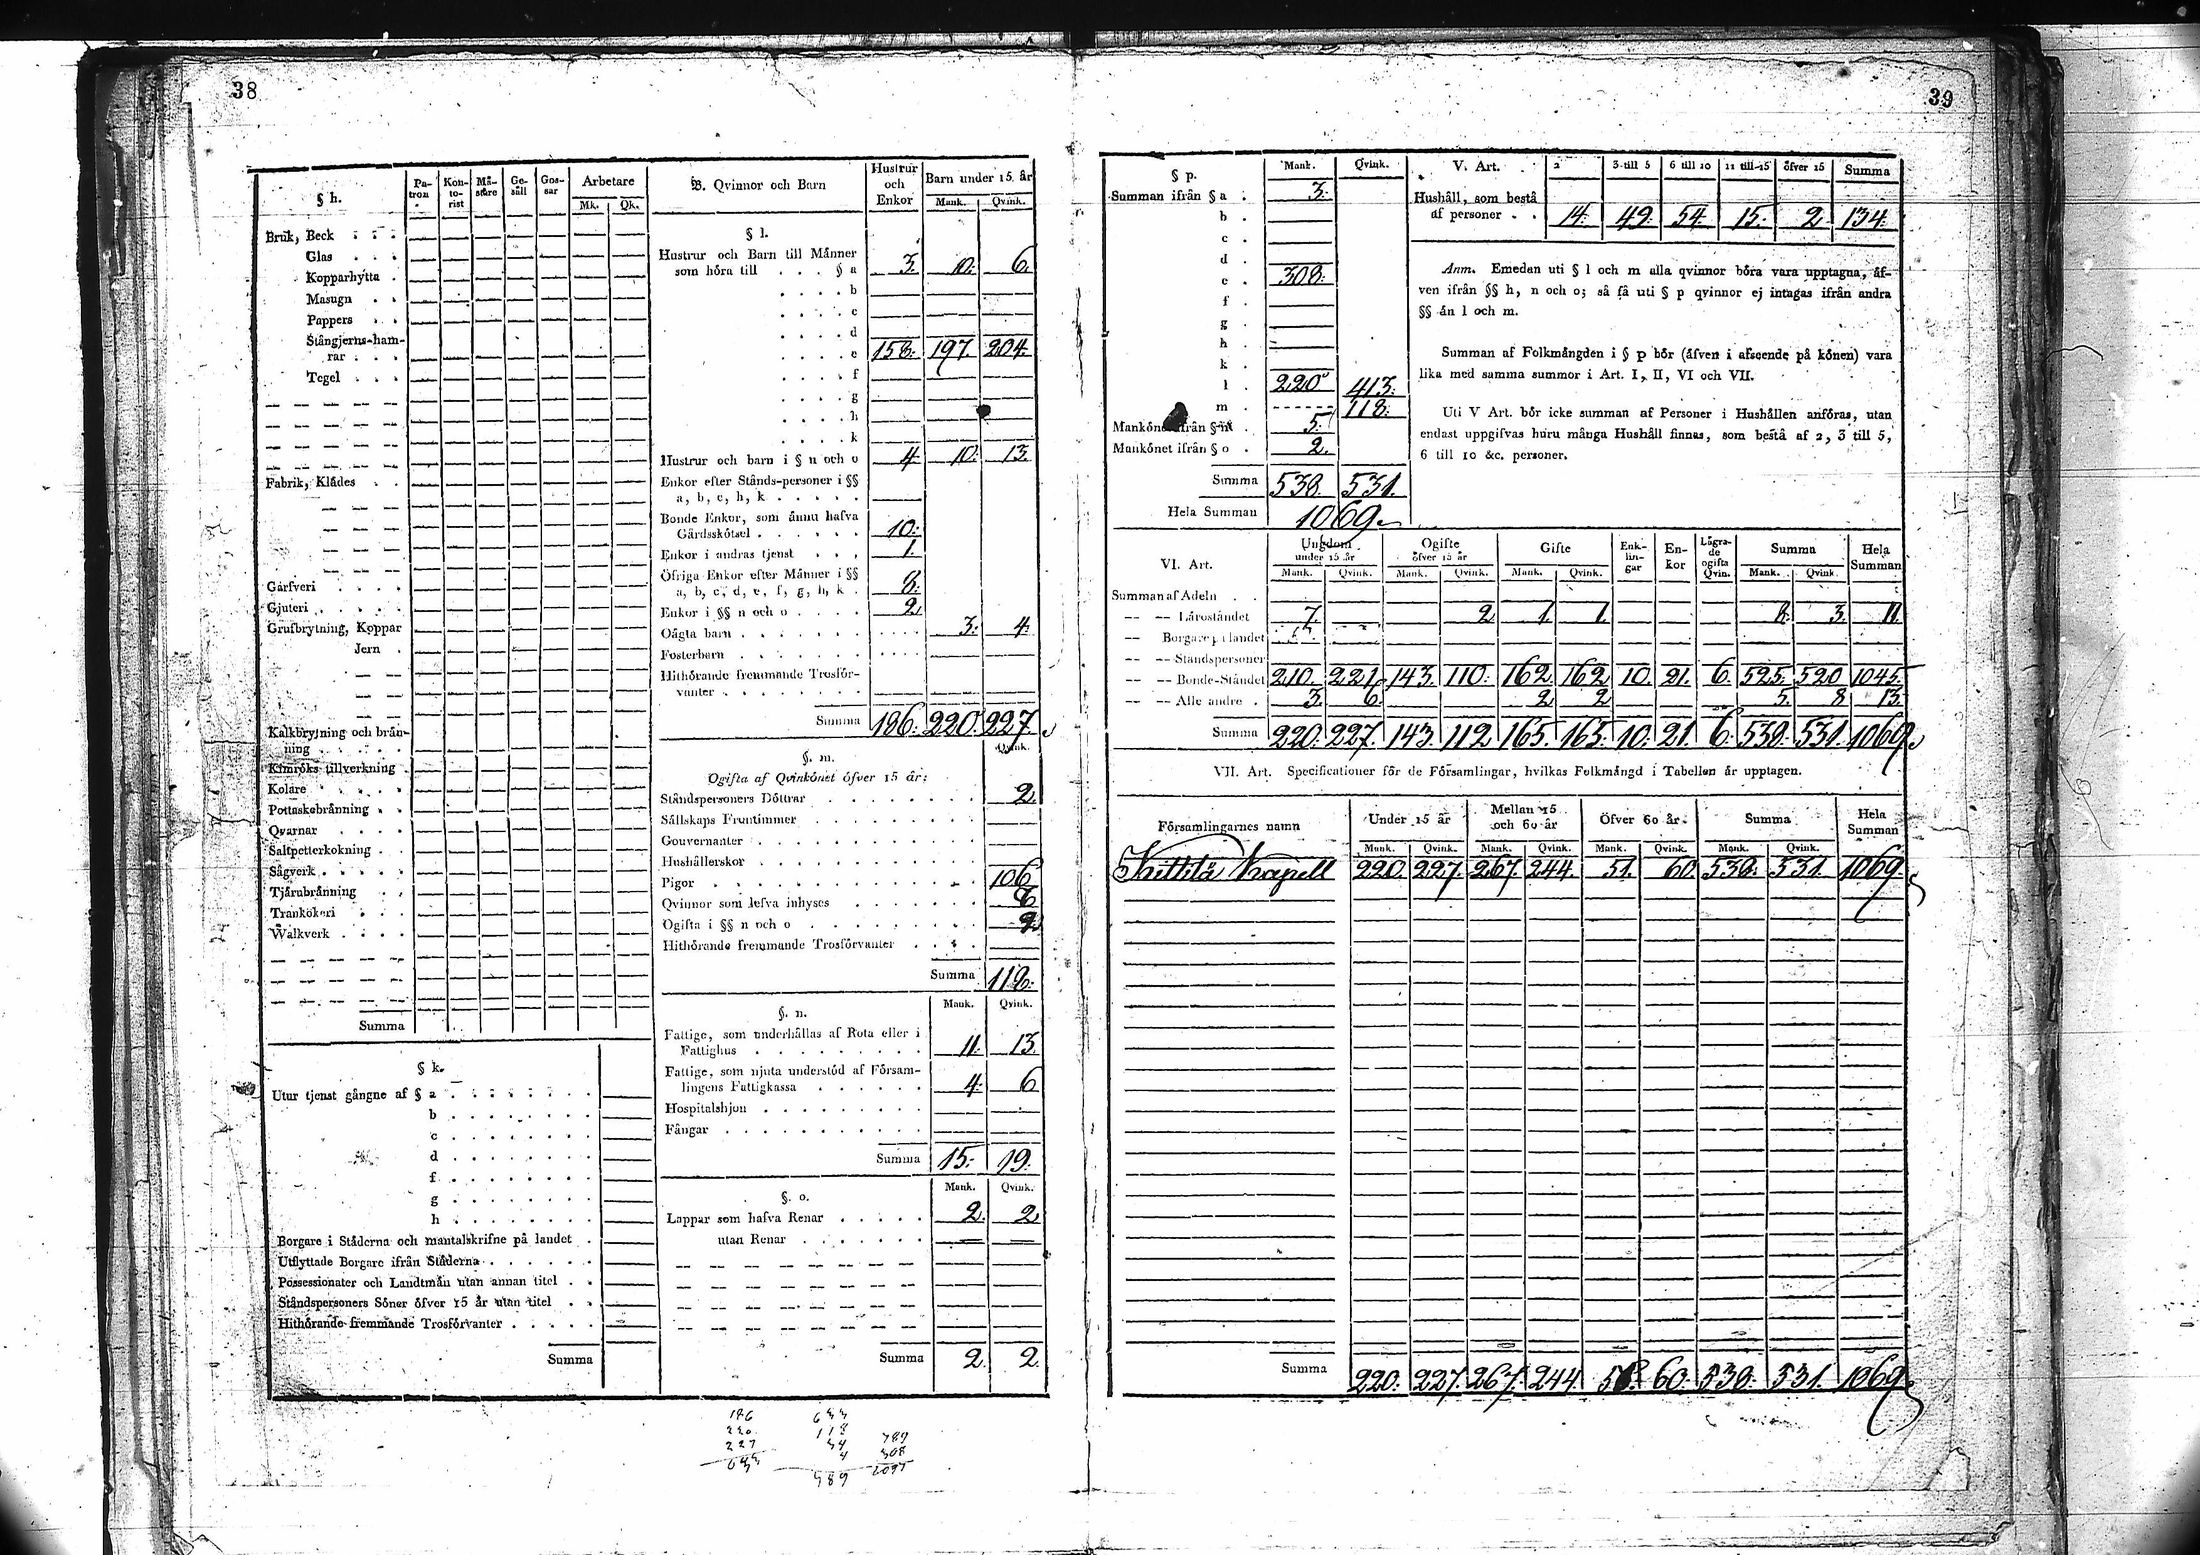 38
§ h.
Pa-tron
Kon-to-rist
Mä-stare
Ge-säll
Gos-sar
Arbetare
Mk. Qk.
Bruk, Beck . . .
Glas . . .
Kopparhytta .
Masugn . .
Pappers . .
Stångjerns-ham-
rar . . .
Tegel . . .
Fabrik, Klädes . .
Garfveri . . . .
Gjuteri . . . . .
Grufbrytning, Koppar
Jern .
Kalkbrytning och brän-
ning . . . . .
Kimröks tillverkning .
Kolare . . . . .
Pottaskebränning . .
Qvarnar . . . .
Saltpetterkokning . .
Sågverk . . . . .
Tjärubränning . .
Trankokeri . . .
Walkverk . . . .
Summa
§ k.
Utur tjenst gångne af § a . . . . . . .
b . . . . . . .
c . . . . . . .
d . . . . . . .
f . . . . . . .
g . . . . . . .
h . . . . . . .
Borgare i Städerna och mantalskrifne på landet .
Utflyttade Borgare ifrån Städerna . . . . .
Possessionater och Landtmän utan annan titel . .
Ståndspersoners Söner öfver 15 år utan titel . .
Hithörande fremmande Trosförvanter . . . . .
Summa
B. Qvinnor och Barn
Hustrur och Enkor
Barn under 15 år
Mank. Qvink.
§ l.
Hustrur och Barn till Männer
som höra till . . . § a 3. 10. 6.
. . . . b
. . . . c
. . . . d
. . . . e 158. 197. 204.
. . . . f
. . . . g
. . . . h
. . . . k
Hustrur och barn i § n och o 4. 10. 13.
Enkor efter Stånds-personer i §§
a, b, c, h, k . . . . .
Bonde Enkor, som ännu hafva
Gårdsskötsel . . . . . . 10.
Enkor i andras tjenst . . . 1.
Öfriga Enkor efter Männer i §§
a, b, c, d, e, f, g, h, k . 8.
Enkor i §§ n och o . . . . 2.
Oägta barn . . . . . . . 3. 4.
Fosterbarn . . . . . . .
Hithörande fremmande Trosför-
vanter . . . . . . . .
Summa 186. 220. 227.
§. m.
Qvink.
Ogifta af Qvinkönet öfver 15 år:
Ståndspersoners Döttrar . . . . . . . . 2.
Sällskaps Fruntimmer . . . . . . . .
Gouvernanter . . . . . . . . . .
Hushållerskor . . . . . . . . . .
Pigor . . . . . . . . . . . . 106
Qvinnor som lefva inhyses . . . . . . .
Ogifta i §§ n och o . . . . . . . . .
Hithörande fremmande Trosförvanter . . . .
Summa 118.
Mank. Qvink.
§. n.
Fattige, som underhållas af Rota eller i
Fattighus . . . . . . . . . 11. 13.
Fattige, som njuta understöd af Försam-
lingens Fattigkassa . . . . . . 4. 6
Hospitalshjon . . . . . . . . .
Fångar . . . . . . . . . . .
Summa 15. 19.
Mank. Qvink.
§. o.
Lappar som hafva Renar . . . . . 2. 2
utan Renar . . . . . . .
Summa 2. 2.
186
220
227
633
633
118
34
4
789
789
308
1097
39
§ p.
Mank. Qvink.
Summan ifrån § a . 3.
b .
c .
d .
e . 308.
f .
g .
h .
k .
l . 220 413.
m . 118.
Mankönet ifrån § n . 5.
Mankönet ifrån § o . 2.
Summa 538. 531.
Hela Summan 1069
V. Art. 2 3 till 5 6 till 10 11 till 15 öfver 15 Summa
Hushåll, som bestå
af personer . . 14. 49. 54. 15. 2. 134.
Anm. Emedan uti § l och m alla qvinnor böra vara upptagna, äf-
ven ifrån §§ h, n och o; så få uti § p qvinnor ej intagas ifrån andra
§§ än l och m.
Summan af Folkmängden i § p bör (äfven i afseende på könen) vara
lika med samma summor i Art. I, II, VI och VII.
Uti V Art. bör icke summan af Personer i Hushållen anföras, utan
endast uppgifvas huru många Hushåll finnas, som bestå af 2, 3 till 5,
6 till 10 &c. personer.
VI. Art.
Ungdom under 15 år
Ogifte öfver 15 år
Gifte
Enk-lin-gar
En-kor
Lägra-de ogifta Qvin.
Summa
Hela Summan
Mank. Qvink. Mank. Qvink. Mank. Qvink. Mank. Qvink.
Summan af Adeln . .
— — Läroståndet 7. 2 1. 1. 8. 3. 11.
— Borgare på landet
— — Ståndspersoner
— — Bonde-Ståndet 210. 221. 143. 110. 162. 162. 10. 21. 6. 525. 520 1045.
— — Alle andre . 3. 6. 2 2 5. 8 13.
Summa 220. 227. 143. 112 165. 165. 10. 21. 6. 538. 531. 1069.
VII. Art. Specificationer för de Församlingar, hvilkas Folkmängd i Tabellen är upptagen.
Församlingarnes namn
Under 15 år
Mellan 15 och 60 år
Öfver 60 år.
Summa
Hela Summan
Mank. Qvink. Mank. Qvink. Mank. Qvink. Mank. Qvink.
Kittilä Kapell 220. 227. 267. 244. 51. 60 538. 531. 1069.
Summa 220. 227. 267. 244. 51. 60. 538. 531. 1069.